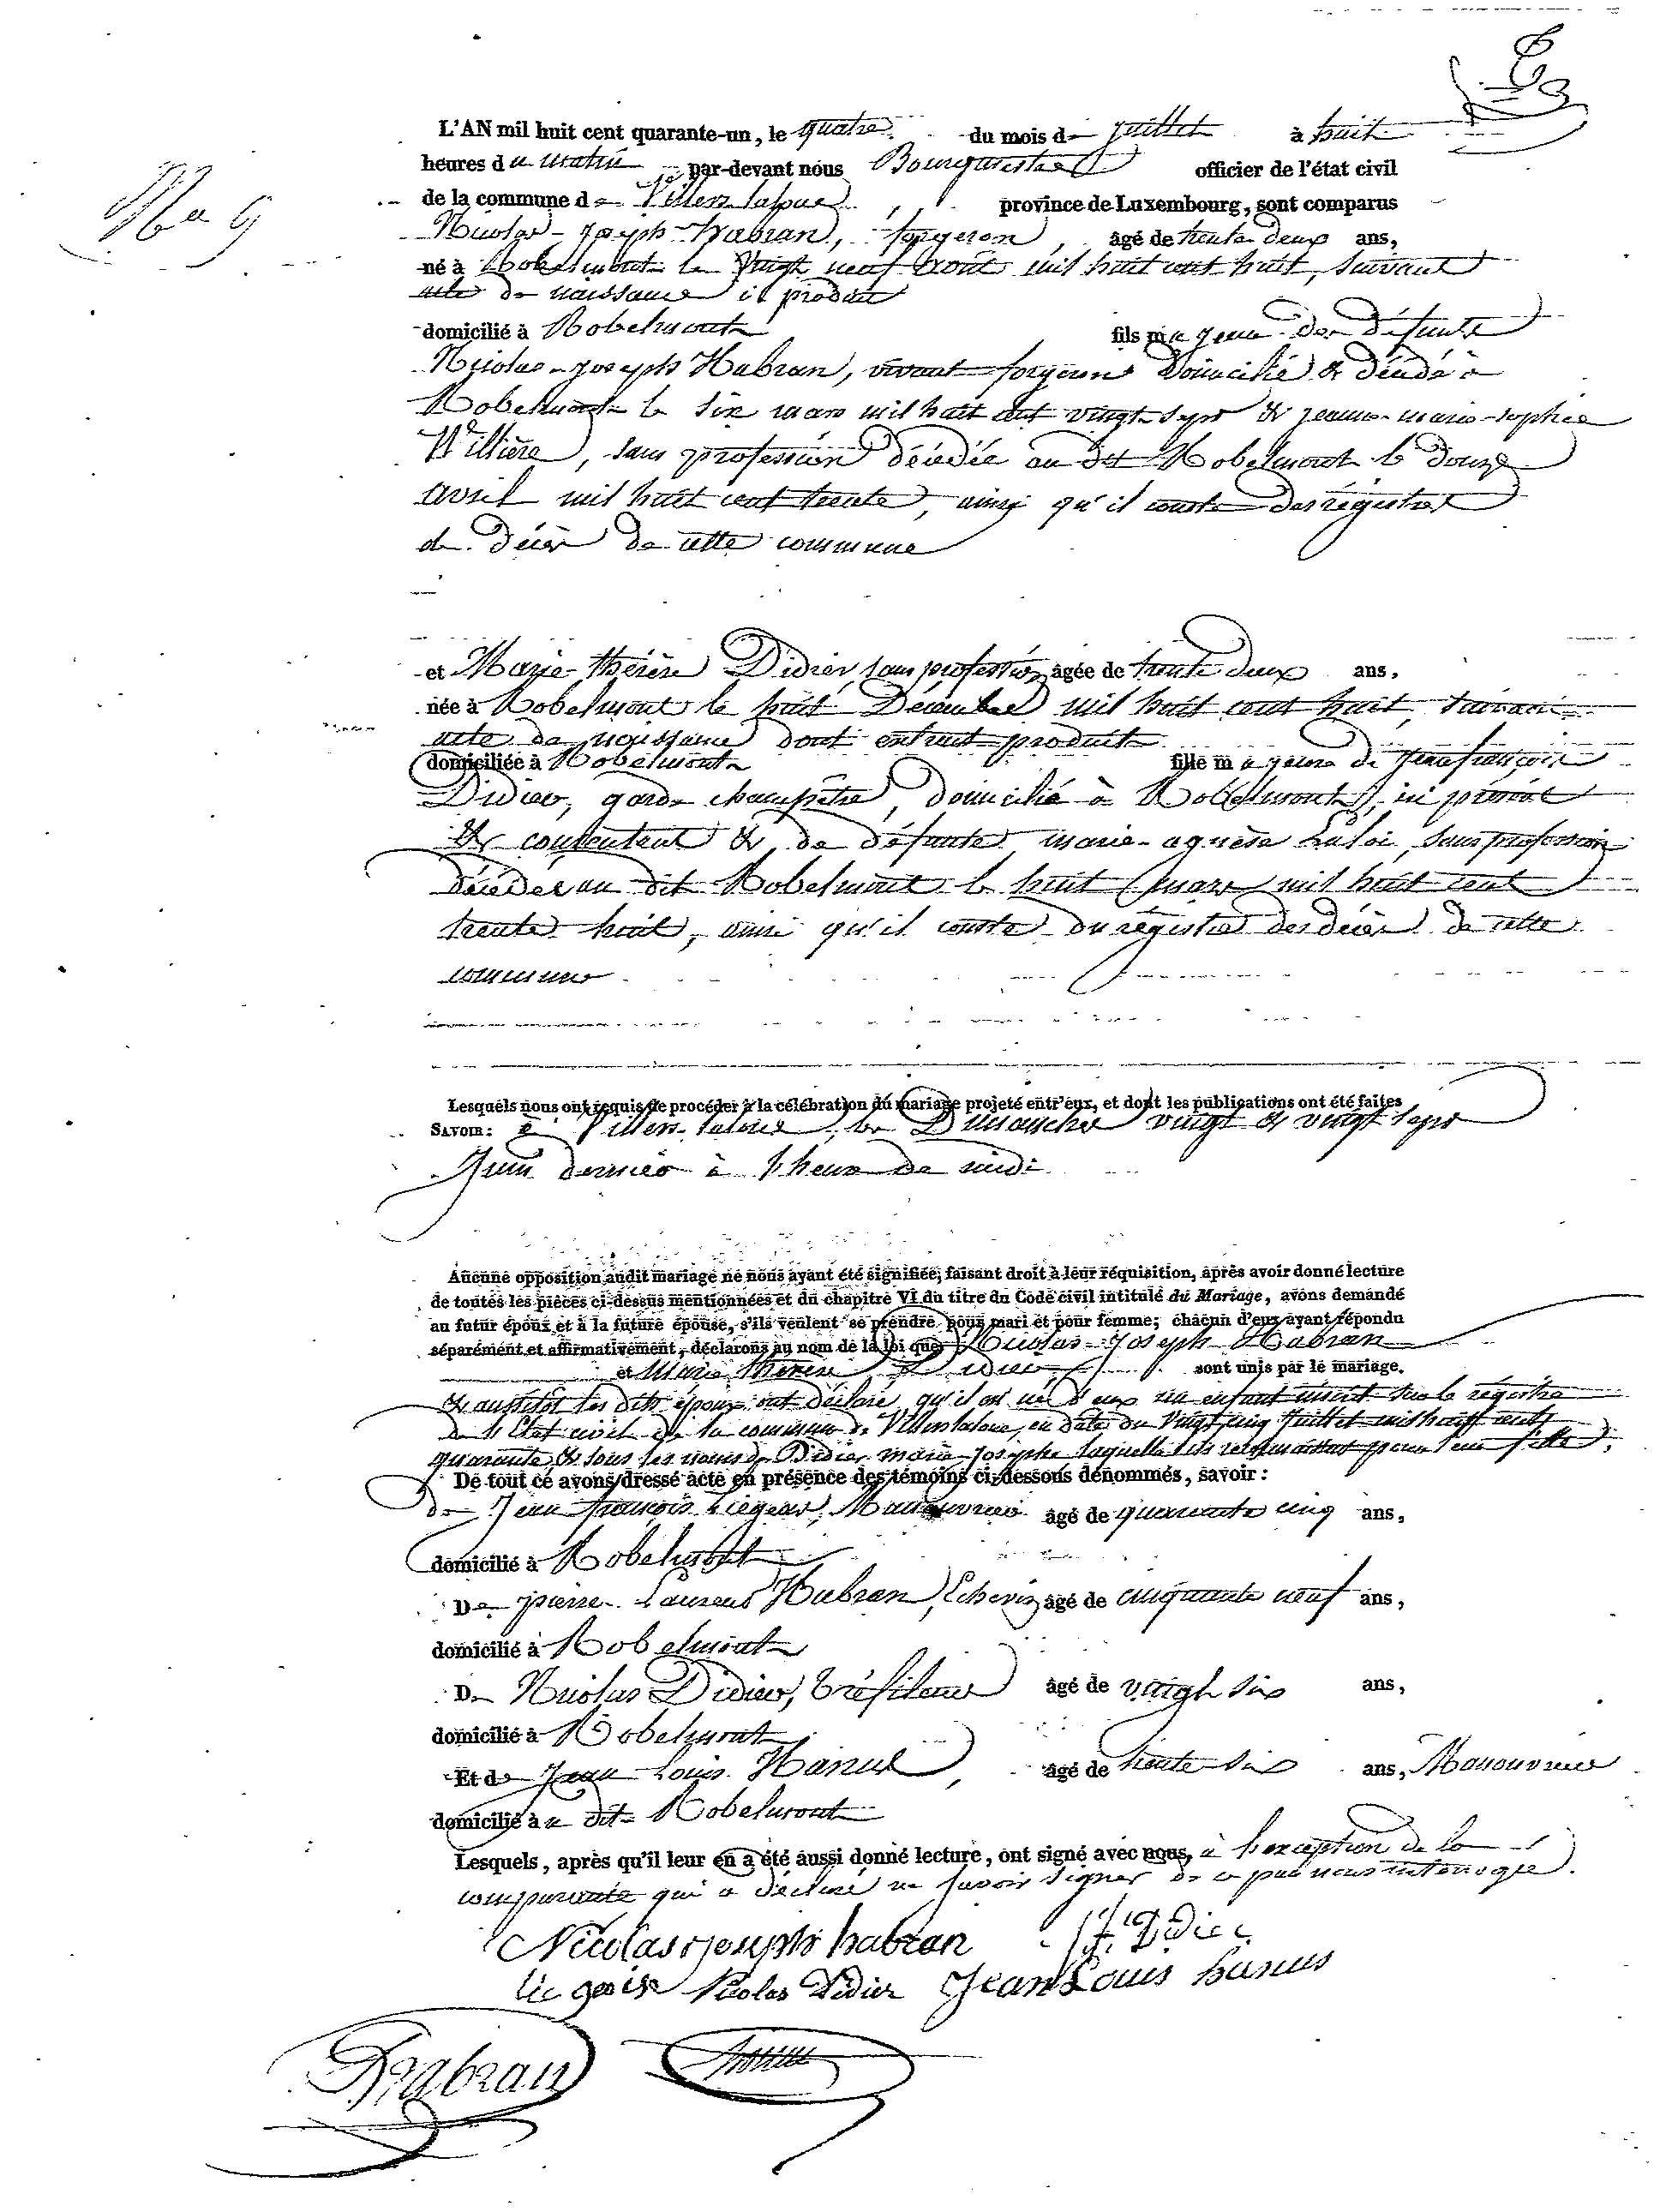 No 9
L'AN mil huit cent quarante-un, le quatre du mois de juillet à huit
heures du matin par-devant nous Bourgmestre officier de l'état civil
de la commune de Villers laloue province de Luxembourg, sont comparus
Nicolas-Joseph Habran, forgeron, âgé de trente deux ans,
né à Robelmont le vingt neuf août mil huit cent huit, suivant
acte de naissance ici produit
domicilié à Robelmont fils majeur des défunts
Nicolas-joseph Habran, vivant forgeron domicilié & décédé à
Robelmont le six mars mil huit cent vingt sept & jeanne-marie-sophie
Willière, sans profession décédée au dit Robelmont le douze
avril mil huit cent trente, ainsi qu'il conste des régistres
de décès de cette commune
et Marie-thérèse Didier, sans profession âgée de trente deux ans,
née à Robelmont le huit Décembre mil huit cent huit, suivant
acte de naissance dont extrait produit
domiciliée à Robelmont fille majeure de jean françois
Didier, garde champêtre, domicilié à Robelmont, ici présent
& consentant & de défunte marie-agnèse Laloi, sans profession
décédée au dit Robelmont le huit mars mil huit cent
trente huit, ainsi qu'il conste du régistre des décès de cette
commune
Lesquels nous ont requis de procéder à la célébration du mariage projeté entr'eux, et dont les publications ont été faites
SAVOIR: à Villers laloue, les Dimanches vingt & vingt sept
Juin dernier à l'heure de midi
Aucune opposition audit mariage ne nous ayant été signifiée, faisant droit à leur réquisition, après avoir donné lecture
de toutes les pièces ci-dessus mentionnées et du chapitre VI du titre du Code civil intitulé du Mariage, avons demandé
au futur époux et à la future épouse, s'ils veulent se prendre pour mari et pour femme; chacun d'eux ayant répondu
séparément et affirmativement, déclarons au nom de la loi que Nicolas-Joseph Habran
et Marie thérèse Didier sont unis par le mariage.
& aussitôt les dits époux ont déclaré qu'il est né d'eux un enfant inscrit sur le régistre
de l'Etat civil de la commune de Villers laloue, en date du vingt cinq Juillet mil huit cent
quarante & sous les noms de Didier marie-josephe laquelle ils reconnaissent pour leur fille.
De tout ce avons dressé acte en présence des témoins ci-dessous dénommés, savoir:
de Jean françois Liégeois, Manouvrier âgé de quarante cinq ans,
domicilié à Robelmont
De pierre Laurent Habran, Echevin âgé de cinquante neuf ans,
domicilié à Robelmont
De Nicolas Didier, tréfileur âgé de vingt six ans,
domicilié à Robelmont
Et de Jean Louis Hanus, âgé de trente six ans, Manouvrier
domicilié à u dit Robelmont
Lesquels, après qu'il leur en a été aussi donné lecture, ont signé avec nous, à l'exception de la
comparante qui a déclaré ne savoir signer de ce par nous interrogée.
Nicolas joseph habran J. f. Didier
liegois Nicolas Didier Jean Louis hanus
Habran